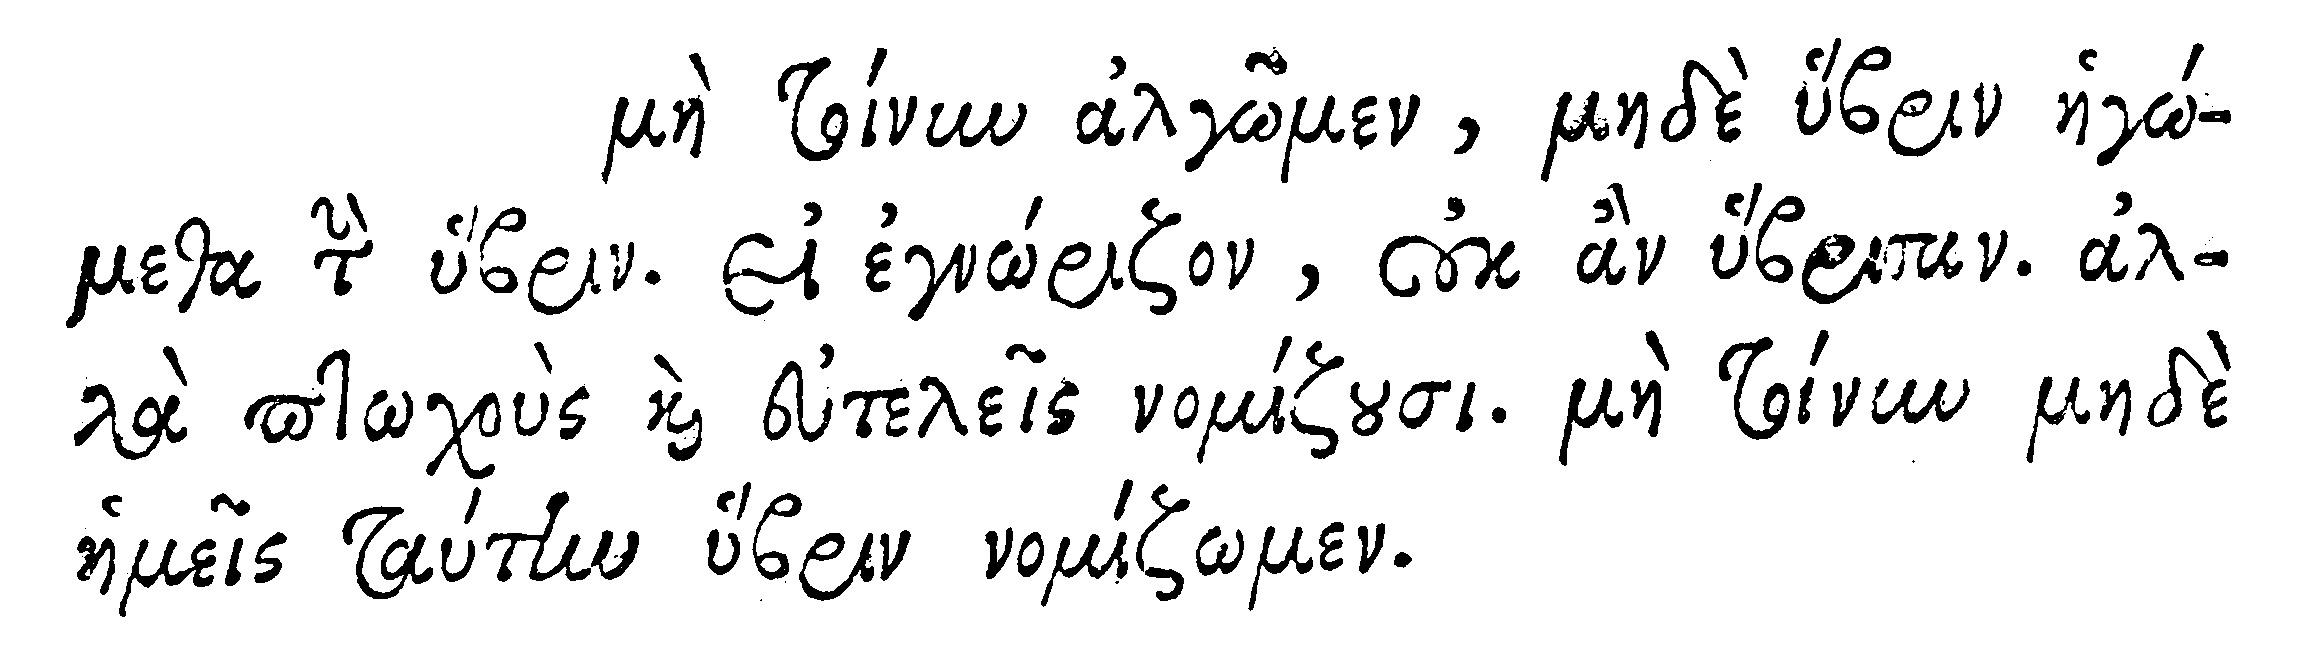 μὴ τοίνυν ἀλγῶμεν, μηδὲ ὕβριν ἡγώ-
μεθα τὴν ὕβριν. εἰ ἐγνώριζον, οὐκ ἂν ὕβρισαν. ἀλ-
λὰ πτωχοὺς καὶ εὐτελεῖς νομίζουσι. μὴ τοίνυν μηδὲ
ἡμεῖς ταύτην ὕβριν νομίζωμεν.